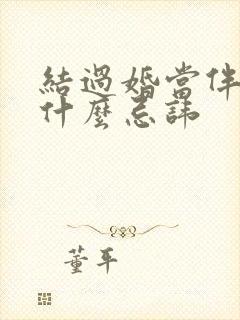 結過婚當伴
什麼忌諱
董平